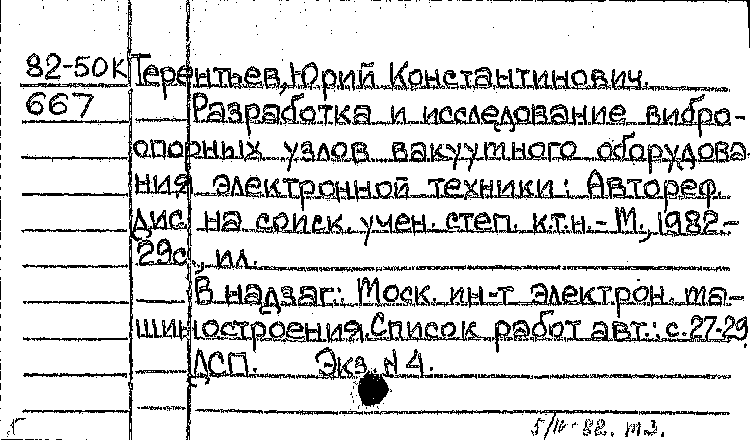 82-50К Терентьев, Юрий Константинович.
667 Разработка и исследование вибро-
опорных узлов вакуутного оборудова
ния электронной техники: Автореф.
дис. на соиск. учен. степ. к.т.н.- М., 1982.-
29с., ил.
В надзаг.: Моск. ин-т электрон. ма-
шиностроения. Список работ авт.: с. 27-29.
ДСП. Экз. N 4.